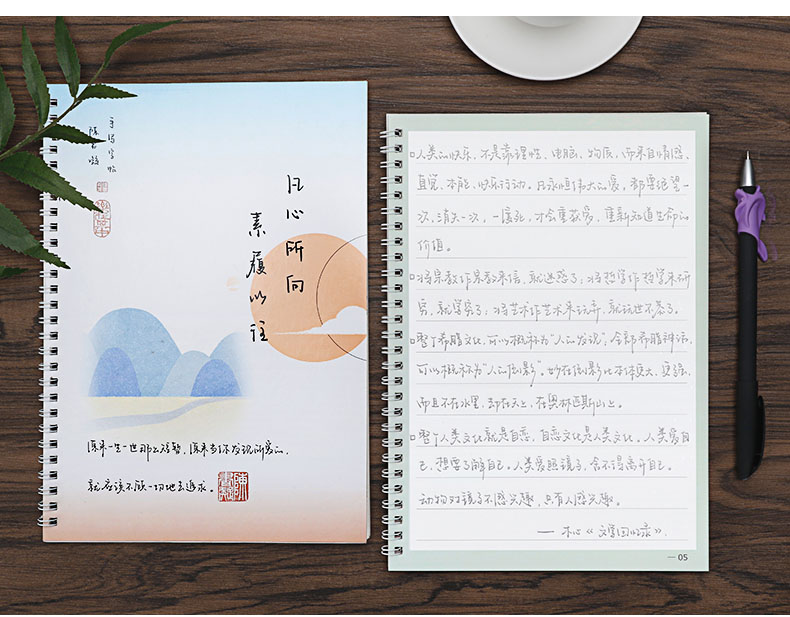 手写字帖
凡心所向
素履以往
原来一生一世那么短暂，原来当你发现所爱的，
就应该不顾一切地去追求。
人类的快乐，不是靠理性、电脑、物质，而来自情感、
直觉、本能、快乐行动。凡永恒伟大的爱，都要绝望一
次，消失一次，一度死，才会重获爱，重新知道生命的
价值。
将宗教作宗教来信，就迷惑了；将哲学作哲学来研
究，就学究了；将艺术作艺术来玩弄，就玩世不恭了。
整个希腊文化，可以概称为“人的发现”，全部希腊神话，
可以概称为“人的倒影”。妙在倒影比本体更大，更强，
而且不在水里，却在天上，在奥林匹斯山上。
整个人类文化就是自恋，自恋文化是人类文化。人类爱自
己，想要了解自己。人类爱照镜子，舍不得离开自己。
动物对镜子不感兴趣，只有人感兴趣。
—— 木心《文学回忆录》.
— 05